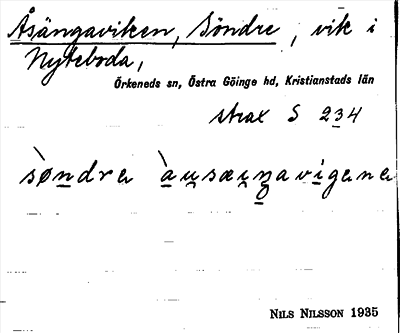 Åsängaviken, Söndre, vik i
Nyteboda,
Örkeneds sn, Östra Göinge hd, Kristianstads län
strax S 234
sǿndra àu̯sæi̯ŋavigena
NILS NILSSON 1935